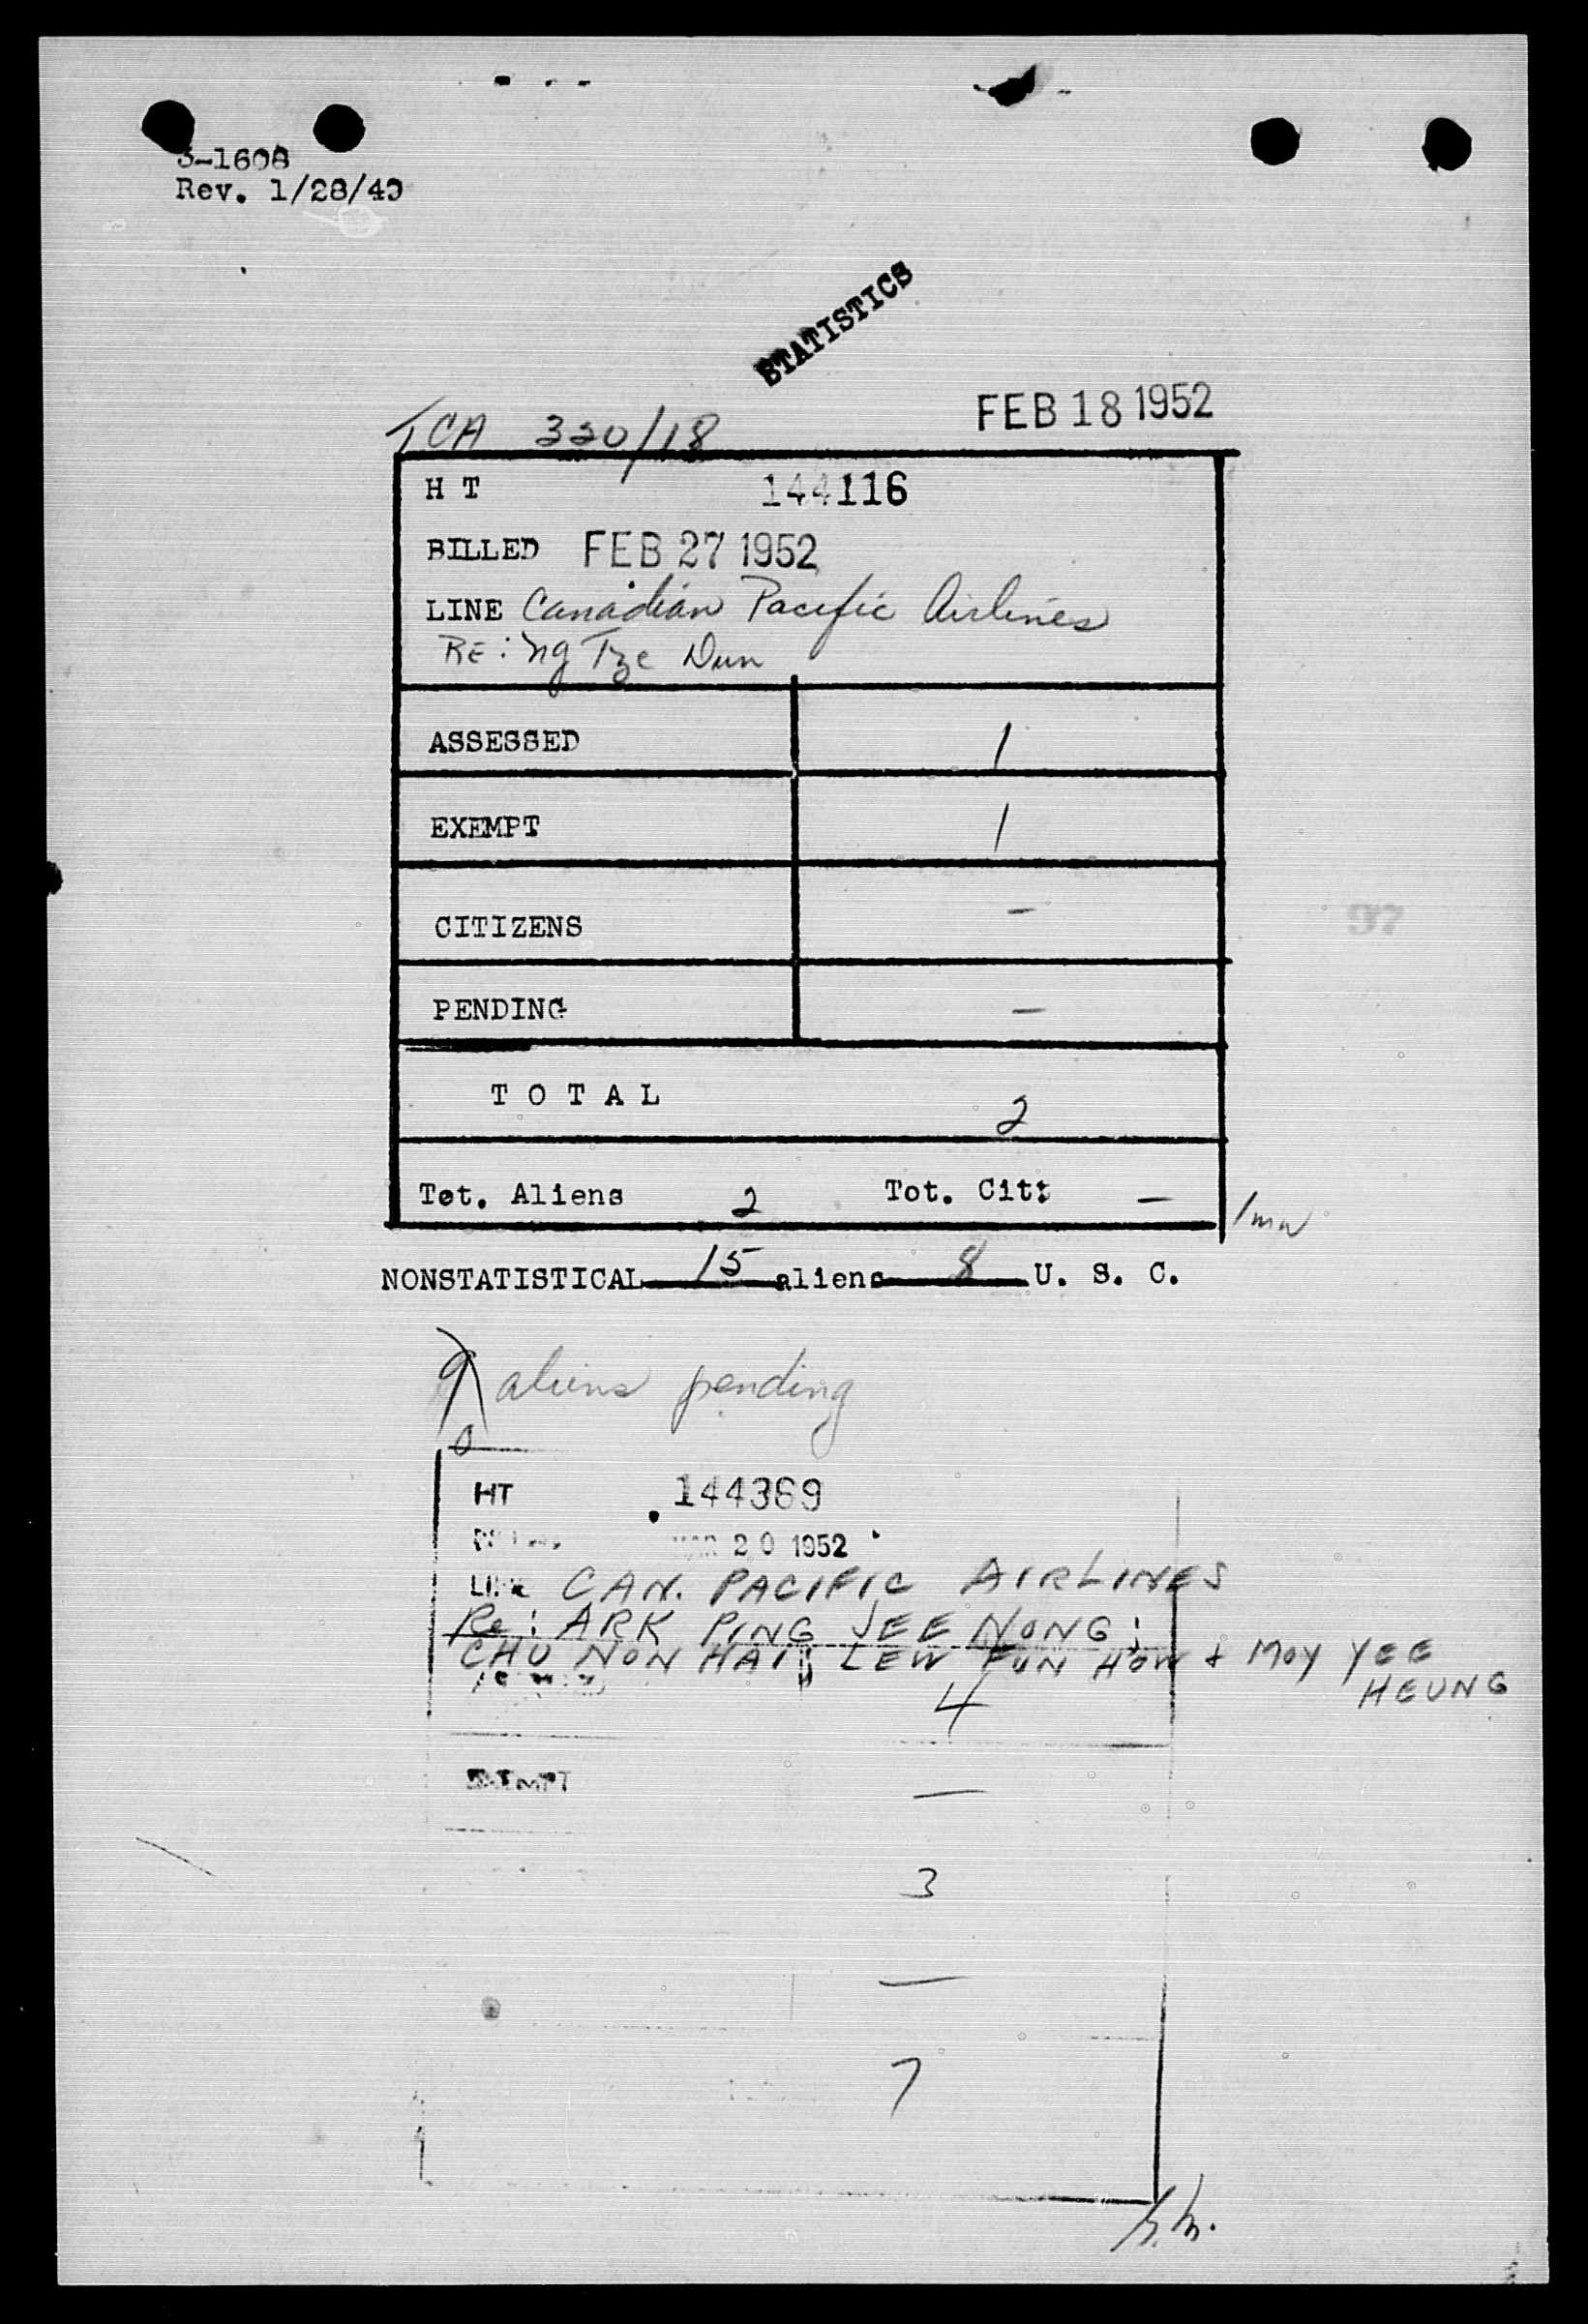 3-1608
Rev. 1/28/49
STATISTICS
FEB 18 1952
TCA 320/18
H T 144116
BILLED FEB 27 1952
LINE Canadian Pacific Airlines
RE: Ng Tze Dun
ASSESSED 1
EXEMPT 1
CITIZENS -
97
PENDING -
T O T A L 2
Tot. Aliens 2 Tot. Cit: -
NONSTATISTICAL 15 aliens 8 U. S. C.
9 aliens pending
0
HT 144369
20 1952
LINE CAN. PACIFIC AIRLINES
Re: ARK PING JEE NONG;
CHU NON HAI; LEW FUN HOW + MOY YEE
HEUNG
4
EXEMPT —
3
—
7